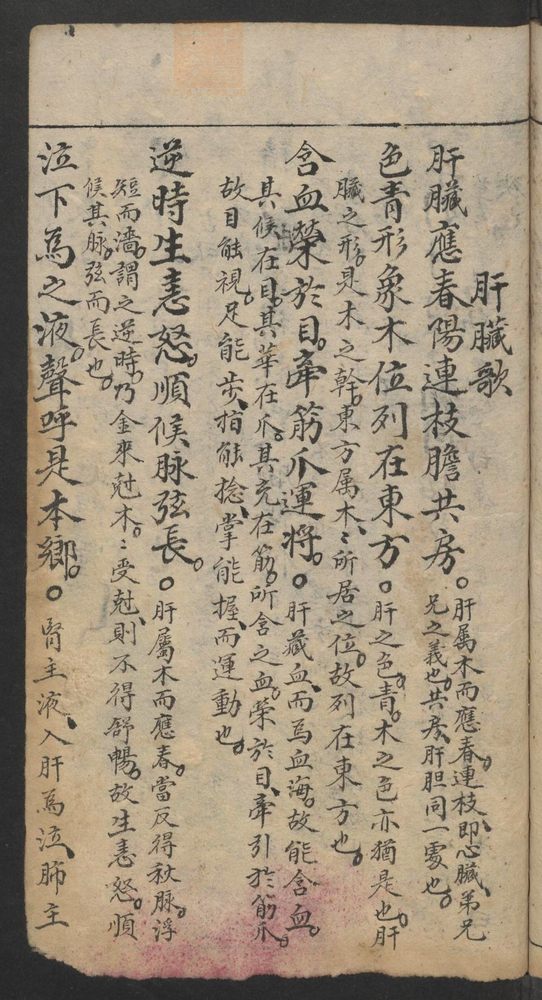 肝臟歌
肝臟應春陽連枝膽共房。肝属木而應春。連枝、即心臟、弟兄
兄之義也。共房、肝胆同一處也。
色青形象木位列在東方。肝之色青。木之色亦猶是也。肝
臟之形。是木之幹。東方属木、〻所居之位。故列在東方也。
含血榮於目。牽筋爪運將。肝藏血、而爲血海。故能含血。
其候在目。其華在爪。其充在筋。所含之血。荣於目、牽引於筋爪。
故目能視。足能步。指能捻、掌能握、而運動也。
逆時生恚怒。順候脉弦長。肝屬木而應春。當反得秋脉。浮
短而濇。謂之逆時。乃金來尅木。〻受尅、則不得舒暢。故生恚怒。順
候其脉。弦而長也。
泣下爲之液。聲呼是本鄉。腎主液、入肝爲泣、肺主